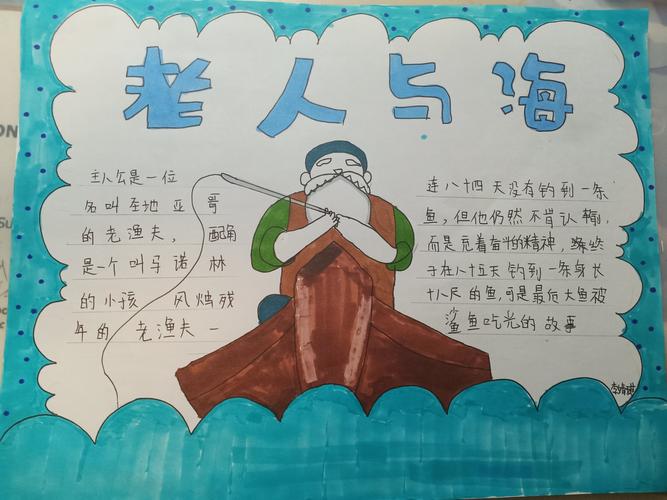 老人与海
主人公是一位
名叫圣地亚哥
的老渔夫，配角
是一个叫马诺林
的小孩 风烛残
年的老渔夫一
连八十四天没有钓到一条
鱼，但他仍然不肯认输，
而是充着奋斗的精神，终
于在八十五天钓到一条身长
十八尺的鱼，可是最后大鱼被
鲨鱼吃光的故事
ON
Su